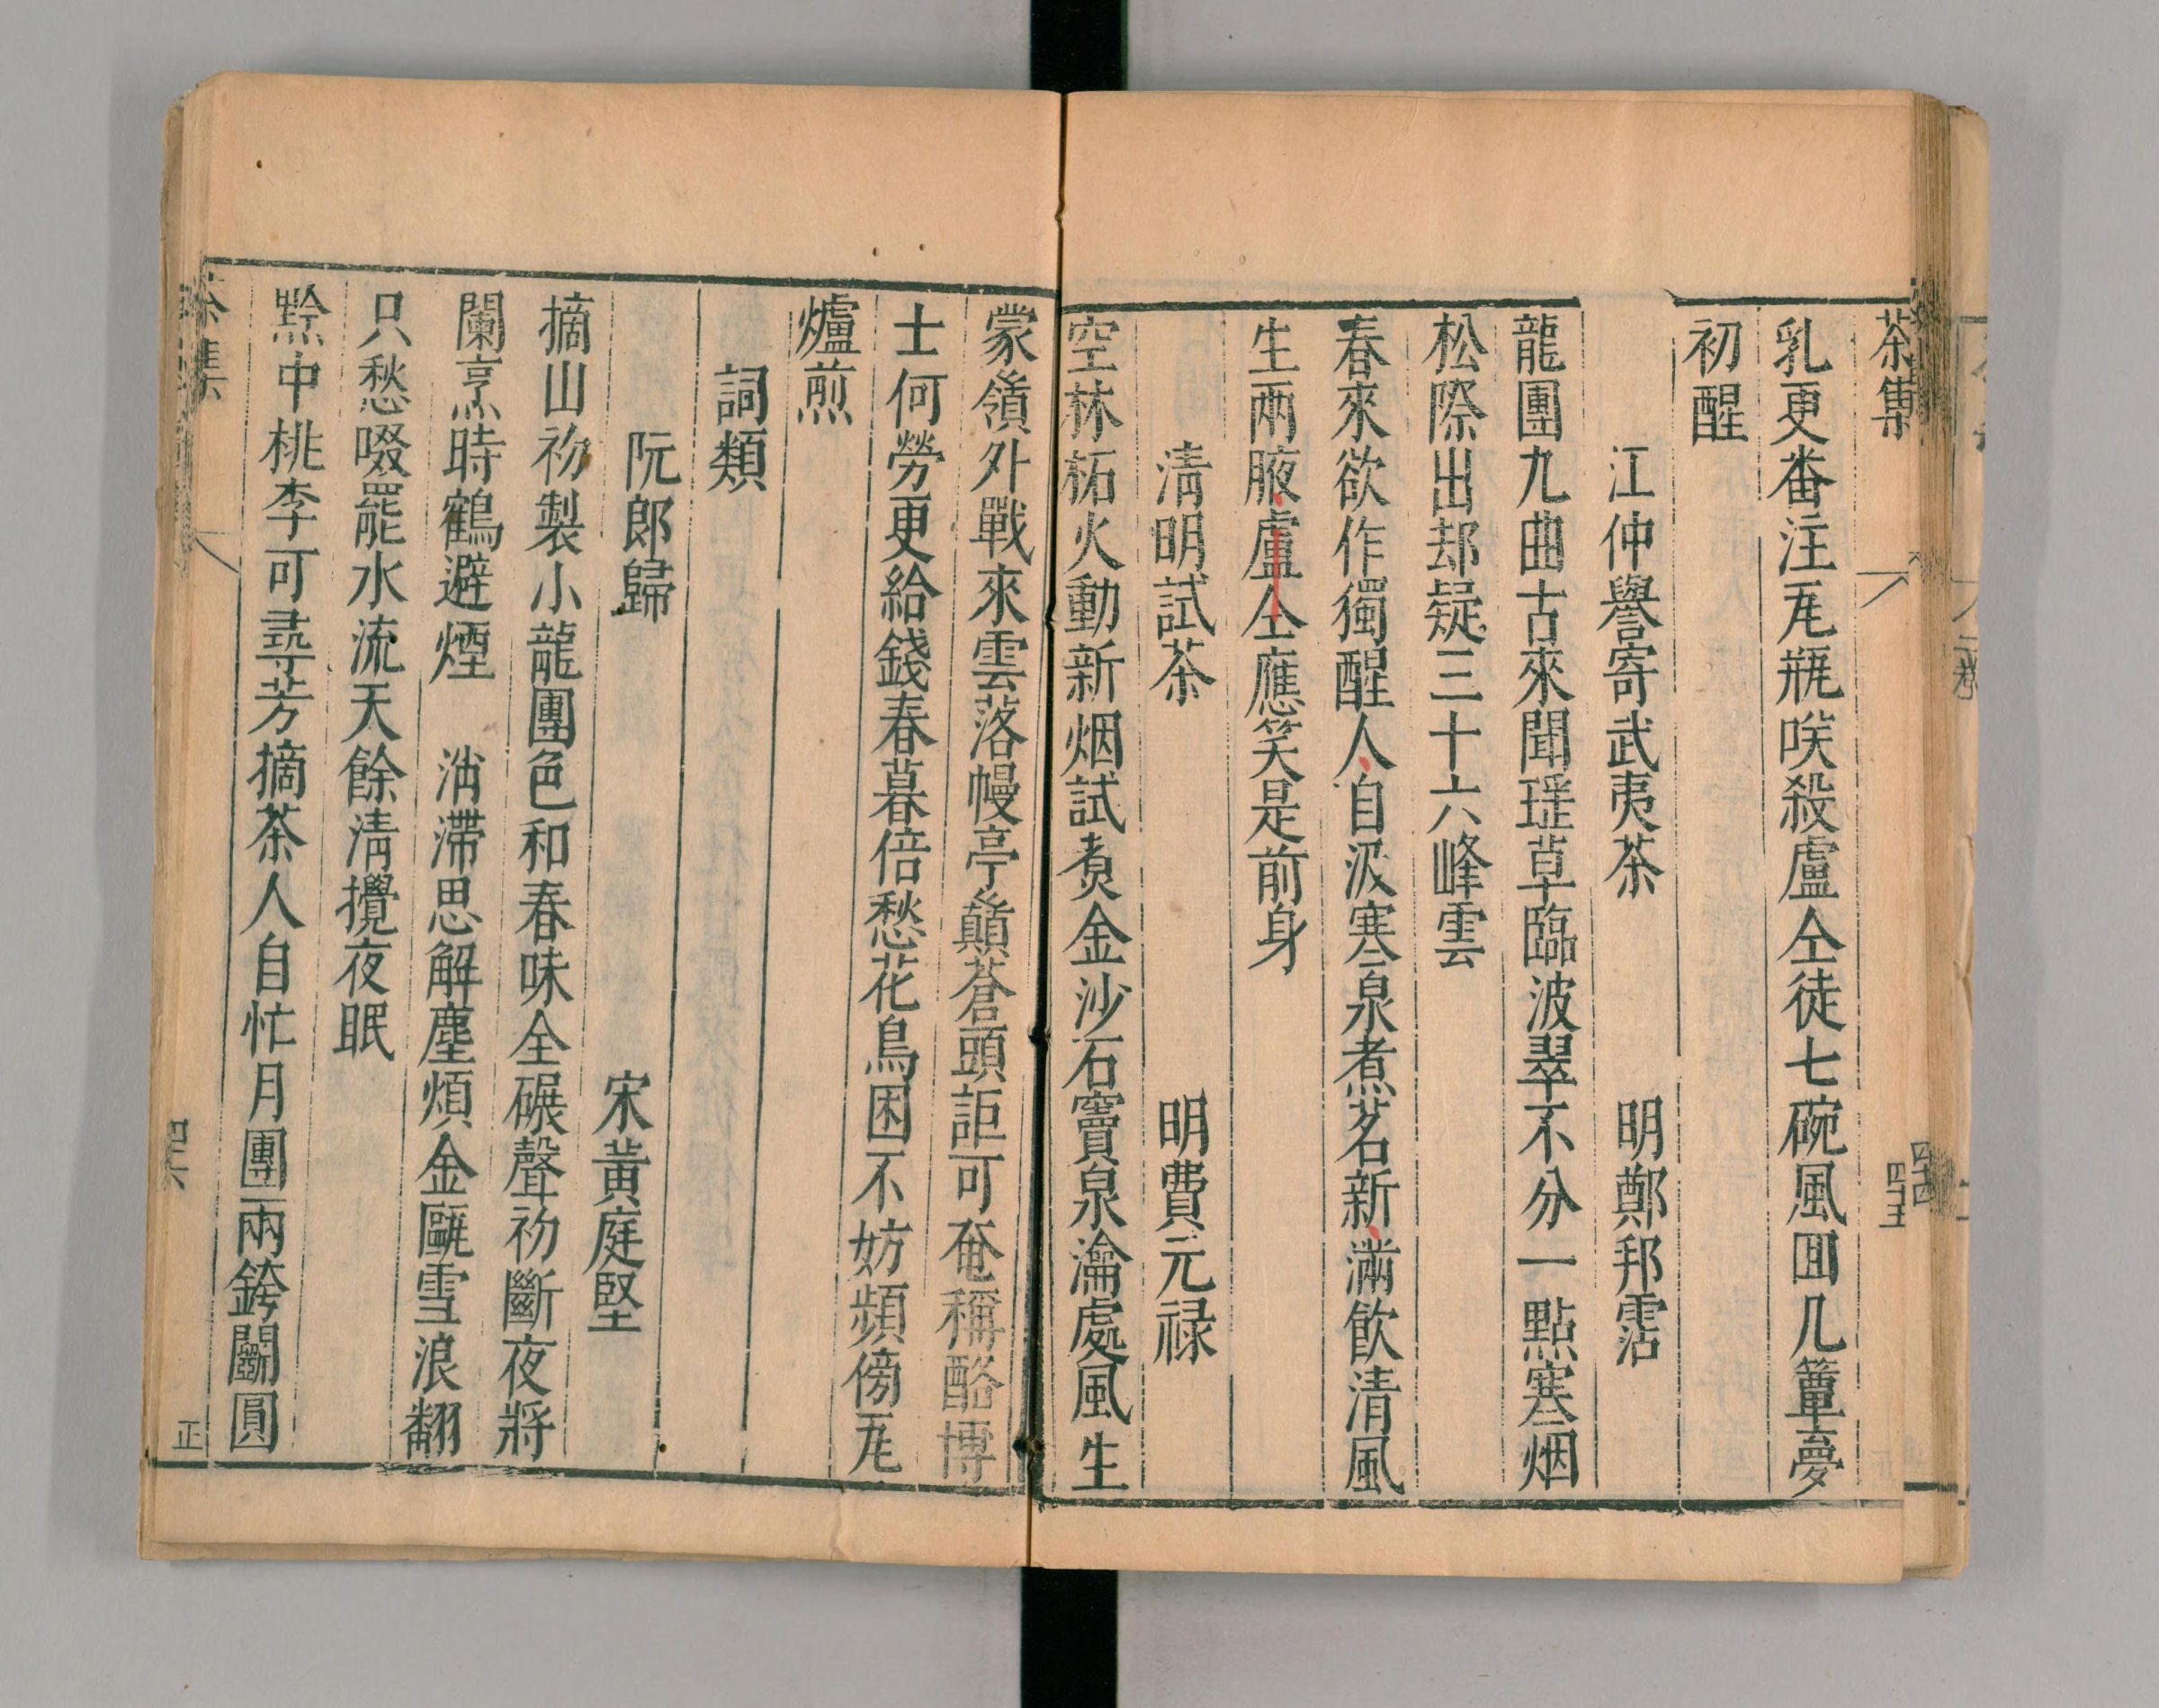 茶集
乳更番注瓦瓶唉殺盧仝徒七碗風回几簟夢
初醒
江仲譽寄武夷茶　明鄭邦霑
龍團九曲古來聞瑤草臨波翠不分一點寒烟
松際出却疑三十六峰雲
春來欲作獨醒人自汲寒泉煮茗新滿飲清風
生兩腋盧仝應笑是前身
清明試茶　明費元禄
空林柘火動新烟試煑金沙石竇泉瀹處風生
蒙嶺外戰來雲落幔亭巔蒼頭詎可奄稱酪博
士何勞更給錢春暮倍愁花鳥困不妨頻傍瓦
爐煎
詞類
阮郎歸　宋黄庭堅
摘山初製小龍團色和春味全碾聲初斷夜將
闌烹時鶴避煙　消滯思解塵煩金甌雪浪翻
只愁啜罷水流天餘清攪夜眠
黔中桃李可尋芳摘茶人自忙月團兩銙鬭圓
茶集
四六
正